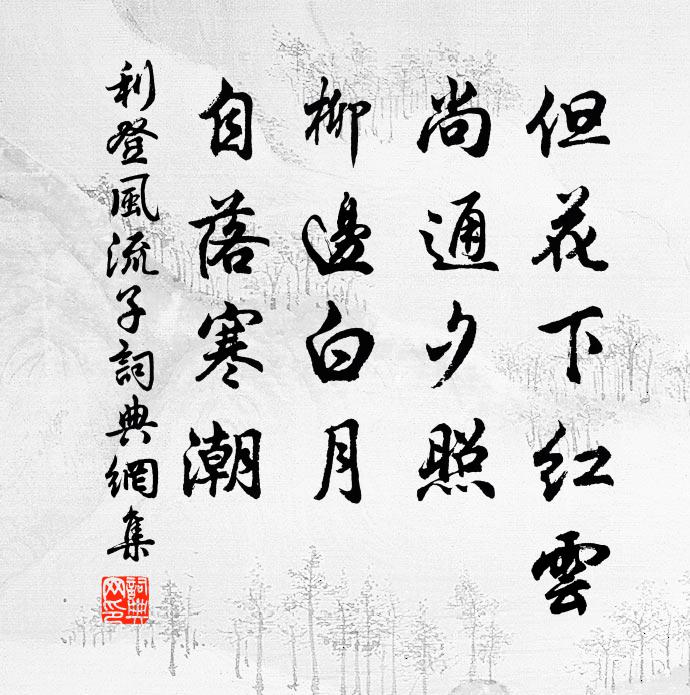 但花下红雲
尚通夕照
柳邊白月
自落寒潮
利登風流子詞典網集
詞典